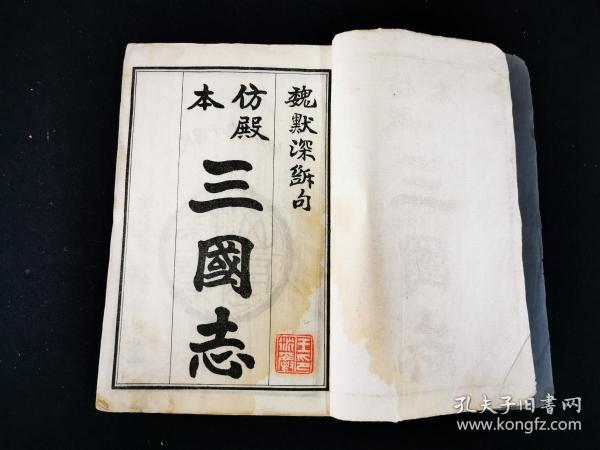 魏默深斷句
仿殿本
三國志
孔夫子旧書网
www.kongfz.com